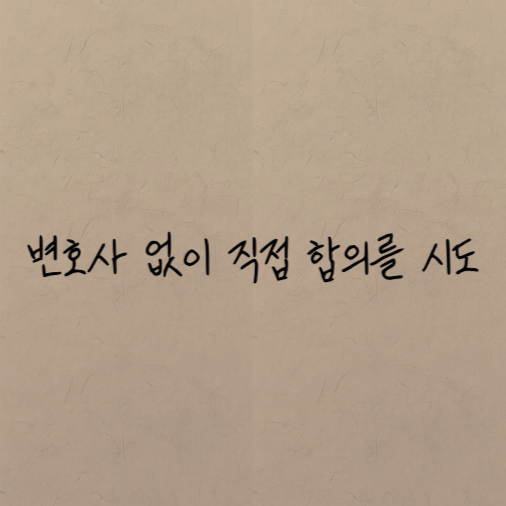 변호사 없이 직접 합의를 시도